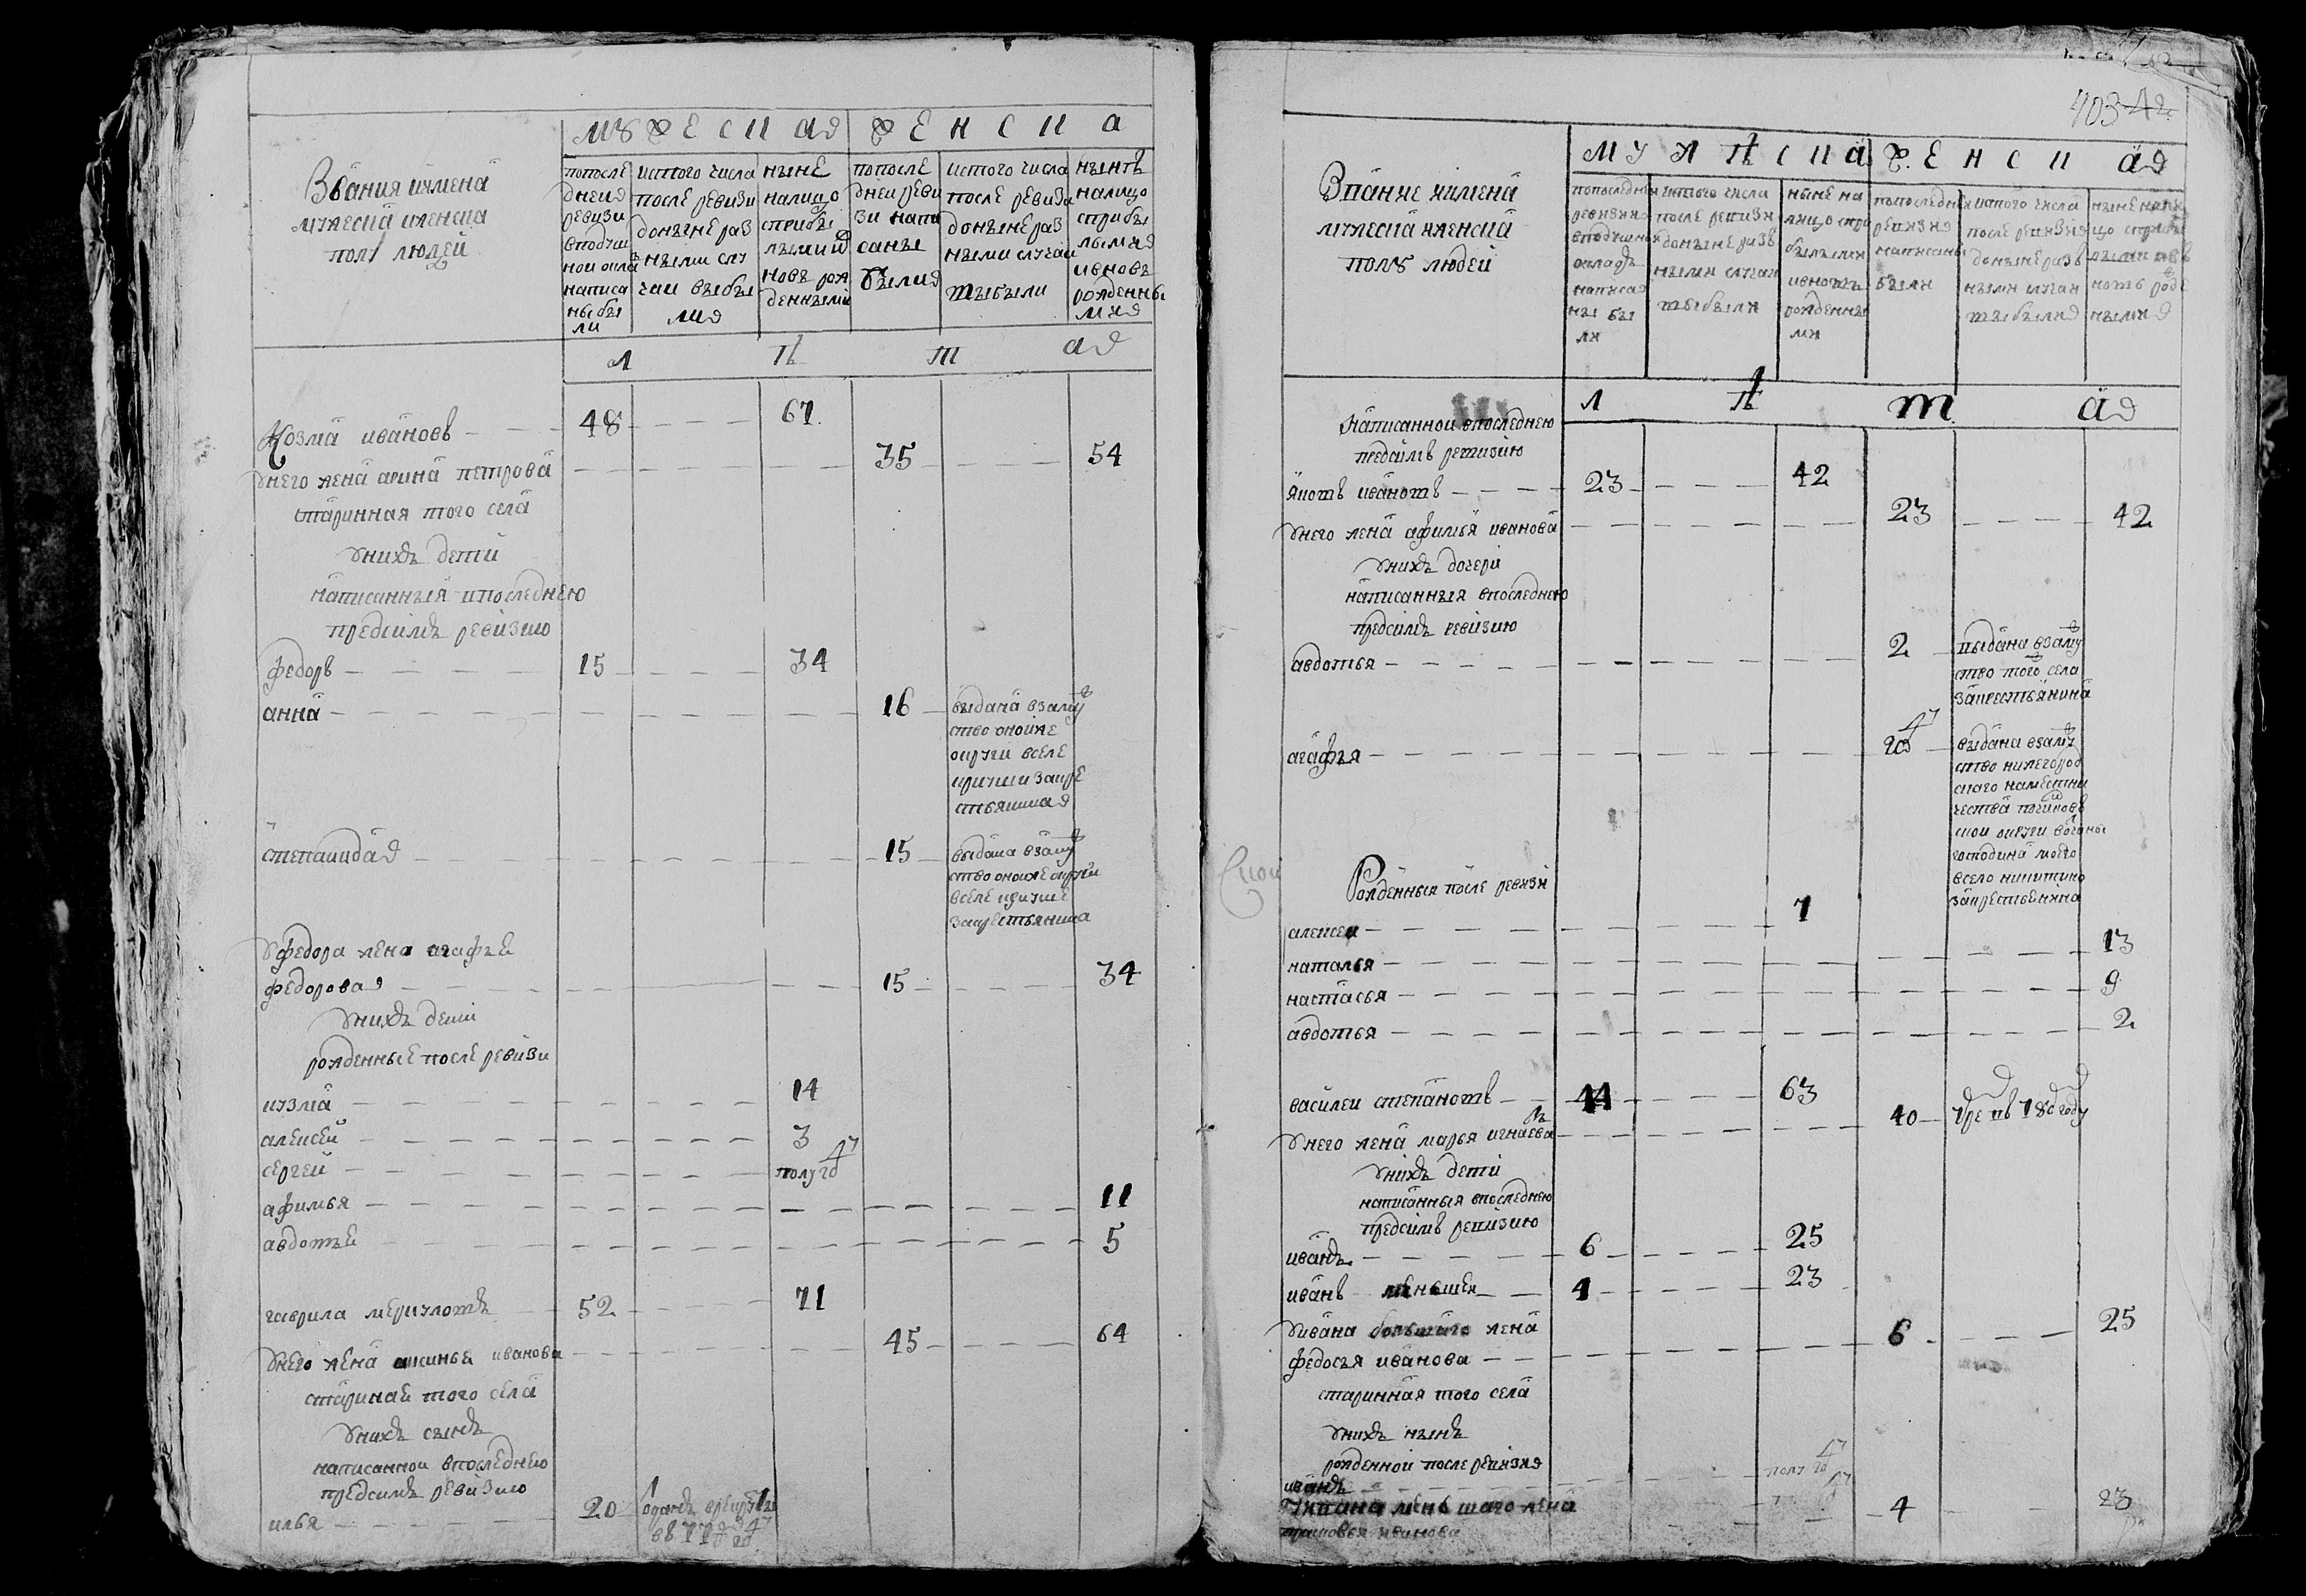 Звания имена
мужеска иженска
полу людей
мужеска
женска
попосле
дней
ревизи
вподуш
ной окла
написа
ны бы
ли
истого числа
после ревизи
доныне раз
ными слу
чаи выбы
ли
ныне
налицо
сприбы
лыми и
новь рож
денными
попосле
дней реви
зи напи
саны
были
истого числа
после ревизи
доныне раз
ными случаи
выбыли
нынѣ
налицо
сприбы
лыми
ивновь
рожденны
ми
л ѣ т а
Козма ивановъ 48 67
унего жена арина петрова 35 54
старинная того села
унихъ дети
написанныя впоследнею
предсимъ ревизию
федоръ 15 34
анна 16 выдана взаму
ство оной же
округи вселе
за кре
стьянина
степанида 15 выдана взаму
ство оной же округи
вселе
закрестьянина
уфедора жена агафья
федорова 15 34
унихъ дети
рожденные после ревизи
кузма 14
алексей 3
сергей полуго
афимья 11
авдотья 5
гаврила меркуловъ 52 71
унего жена аксинья иванова 45 64
старинная того села
унихъ сынъ
написанной впоследнею
предсимъ ревизию
илья 20 отданъ врекруты
в 1771 го
403
Звание имена
мужеска иженска
полу людей
мужеска
женска
попоследней
ревизии
вподушной
окладъ
написа
ны бы
ли
истого числа
после ревизи
доныне разъ
ными случаи
выбыли
ныне на
лицо спри
былыми
ивновь
рожденны
ми
попоследней
ревизии
написаны
были
истого числа
после ревизии
доныне разъ
ными случаи
выбыли
ныне нали
цо сприбы
лыми ив
новь рож
ными
л ѣ т а
написанной впоследнею
предсимъ ревизию
яковъ ивановъ 23 42
унего жена афимья иванова 23 42
унихъ дочери
написанныя впоследнею
предсимъ ревизию
авдотья 2 выдана взаму
ство того села
закрестьянина
агафья выдана взаму
ство нижегород
скаго наместни
чества
ской округи вотчины
господина моего
всело никитино
закрестьянина
Рожденныя после ревизи
алексей 7
наталья 13
настасья 9
авдотья 2
василей степановъ 44 63
унего жена марья игнатьева 40 умре въ 780 году
унихъ дети
написанныя впоследнею
предсимъ ревизию
иванъ 6 25
иванъ меньшей 4 23
уивана большаго жена
федосья иванова 6 25
старинная того села
унихъ сынъ
рожденной после ревизии
иванъ полу го
уивана меньшаго жена
иванова 4 23